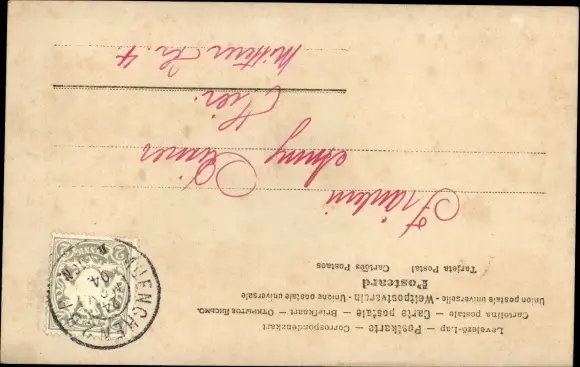 Levelező-Lap — Postkarte — Correspondenzkart
Cartolina postale — Carte postale — Briefkaart — Открытое Письмо.
Union postale universelle - Weltpostverein - Unione postale universale
Postcard
Tarjeta Postal Cartões Postaes
MUENCHEN 04
Fräulein
Anny
Hier.